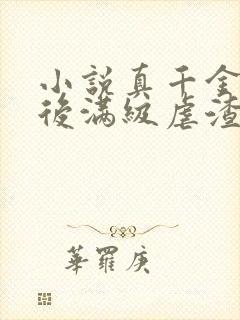 小說真千金
後滿級虐渣
華羅庚